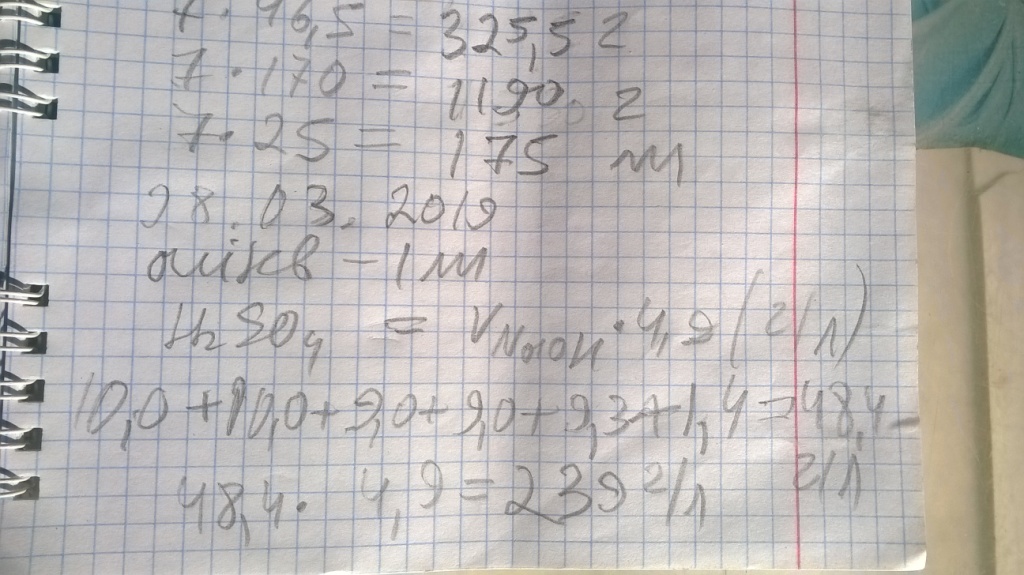 7 · 46,5 = 325,5 г
7 · 170 = 1190 г
7 · 25 = 175 мл
28.03.2019
алікв – 1 мл
H₂SO₄ = VNaOH · 4,9 (г/л)
10,0 + 10,0 + 9,0 + 9,0 + 9,3 + 1,4 = 48,4 –
48,4 · 4,9 = 239 г/л г/л